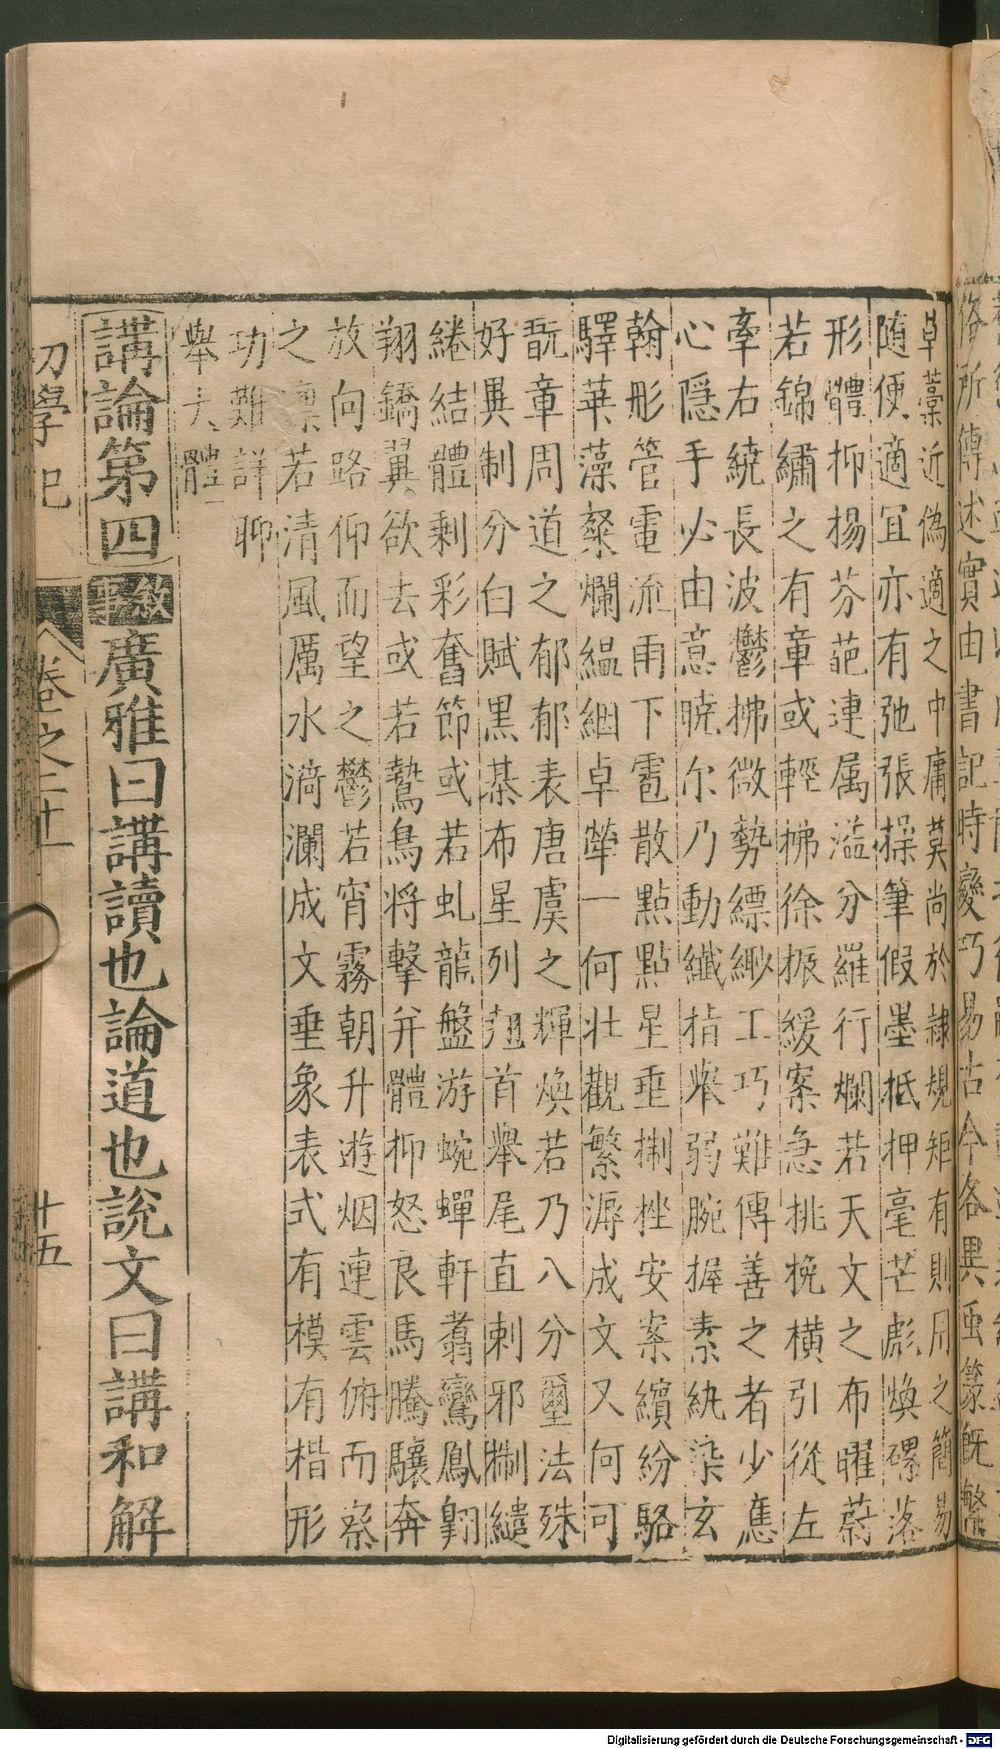 草藁近偽適之中庸莫尚於隷規矩有則用之簡易
随便適宜亦有弛張操筆假墨抵押毫芒彪煥磥落
形體抑揚芬葩連属溢分羅行爛若天文之布曜蔚
若錦繡之有章或輕拂徐振緩案急挑挽橫引從左
牽右繞長波鬱拂微勢縹緲工巧難傳善之者少應
心隱手必由意曉尔乃動纖指舉弱腕握素紈染玄
翰彤管電流雨下雹散點點星垂捌挫安案繽紛駱
驛華藻粲爛縕絪卓犖一何壯觀繁溽成文又何可
翫章周道之郁郁表唐虞之輝煥若乃八分璽法殊
好異制分白賦黑棊布星列翹首舉尾直刺邪掣繾
綣結體剩彩奮節或若虬龍盤游蜿蟬軒翥鸞鳳翺
翔鐍翼欲去或若鷙鳥将擊并體抑怒良馬騰驤奔
放向路仰而望之鬱若宵霧朝升遊烟連雲俯而察
之凛若清風厲水漪瀾成文垂象表式有模有楷形
功難詳聊
舉大體
講論第四 敘事 廣雅曰講讀也論道也說文曰講和解
初學記 卷之二十一 十五
俗所傳述實由書記時變巧易古今各異蟲篆既繁
Digitalisierung gefördert durch die Deutsche Forschungsgemeinschaft - DFG